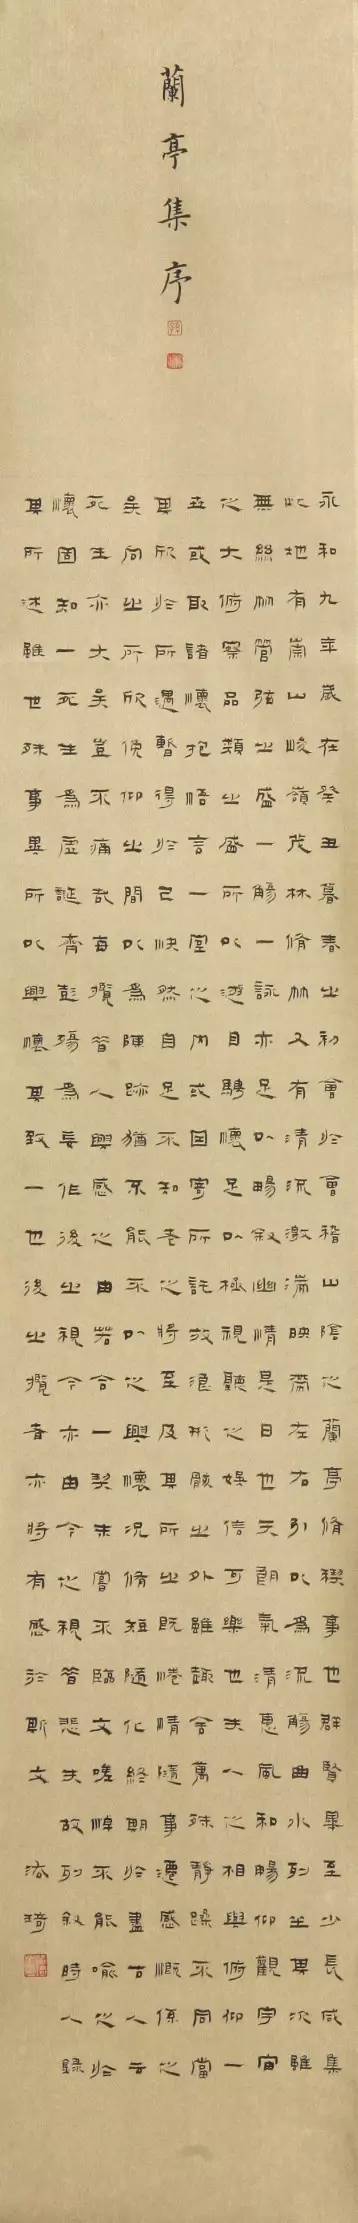 蘭亭集序
永和九年歲在癸丑暮春之初會於會稽山陰之蘭亭脩稧事也群賢畢至少長咸集
此地有崇山峻嶺茂林脩竹又有清流激湍映帶左右引以為流觴曲水列坐其次雖
無絲竹管弦之盛一觴一詠亦足以暢敘幽情是日也天朗氣清惠風和暢仰觀宇宙
之大俯察品類之盛所以遊目騁懷足以極視聽之娛信可樂也夫人之相與俯仰一
世或取諸懷抱悟言一室之內或因寄所託放浪形骸之外雖趣舍萬殊靜躁不同當
其欣於所遇暫得於己快然自足不知老之將至及其所之既惓情隨事遷感慨係之
矣向之所欣俛仰之間以為陳跡猶不能不以之興懷況脩短隨化終期於盡古人云
死生亦大矣豈不痛哉每攬昔人興感之由若合一契未嘗不臨文嗟悼不能喻之於
懷固知一死生為虛誕齊彭殤為妄作後之視今亦由今之視昔悲夫故列敘時人錄
其所述雖世殊事異所以興懷其致一也後之攬者亦將有感於斯文
琦